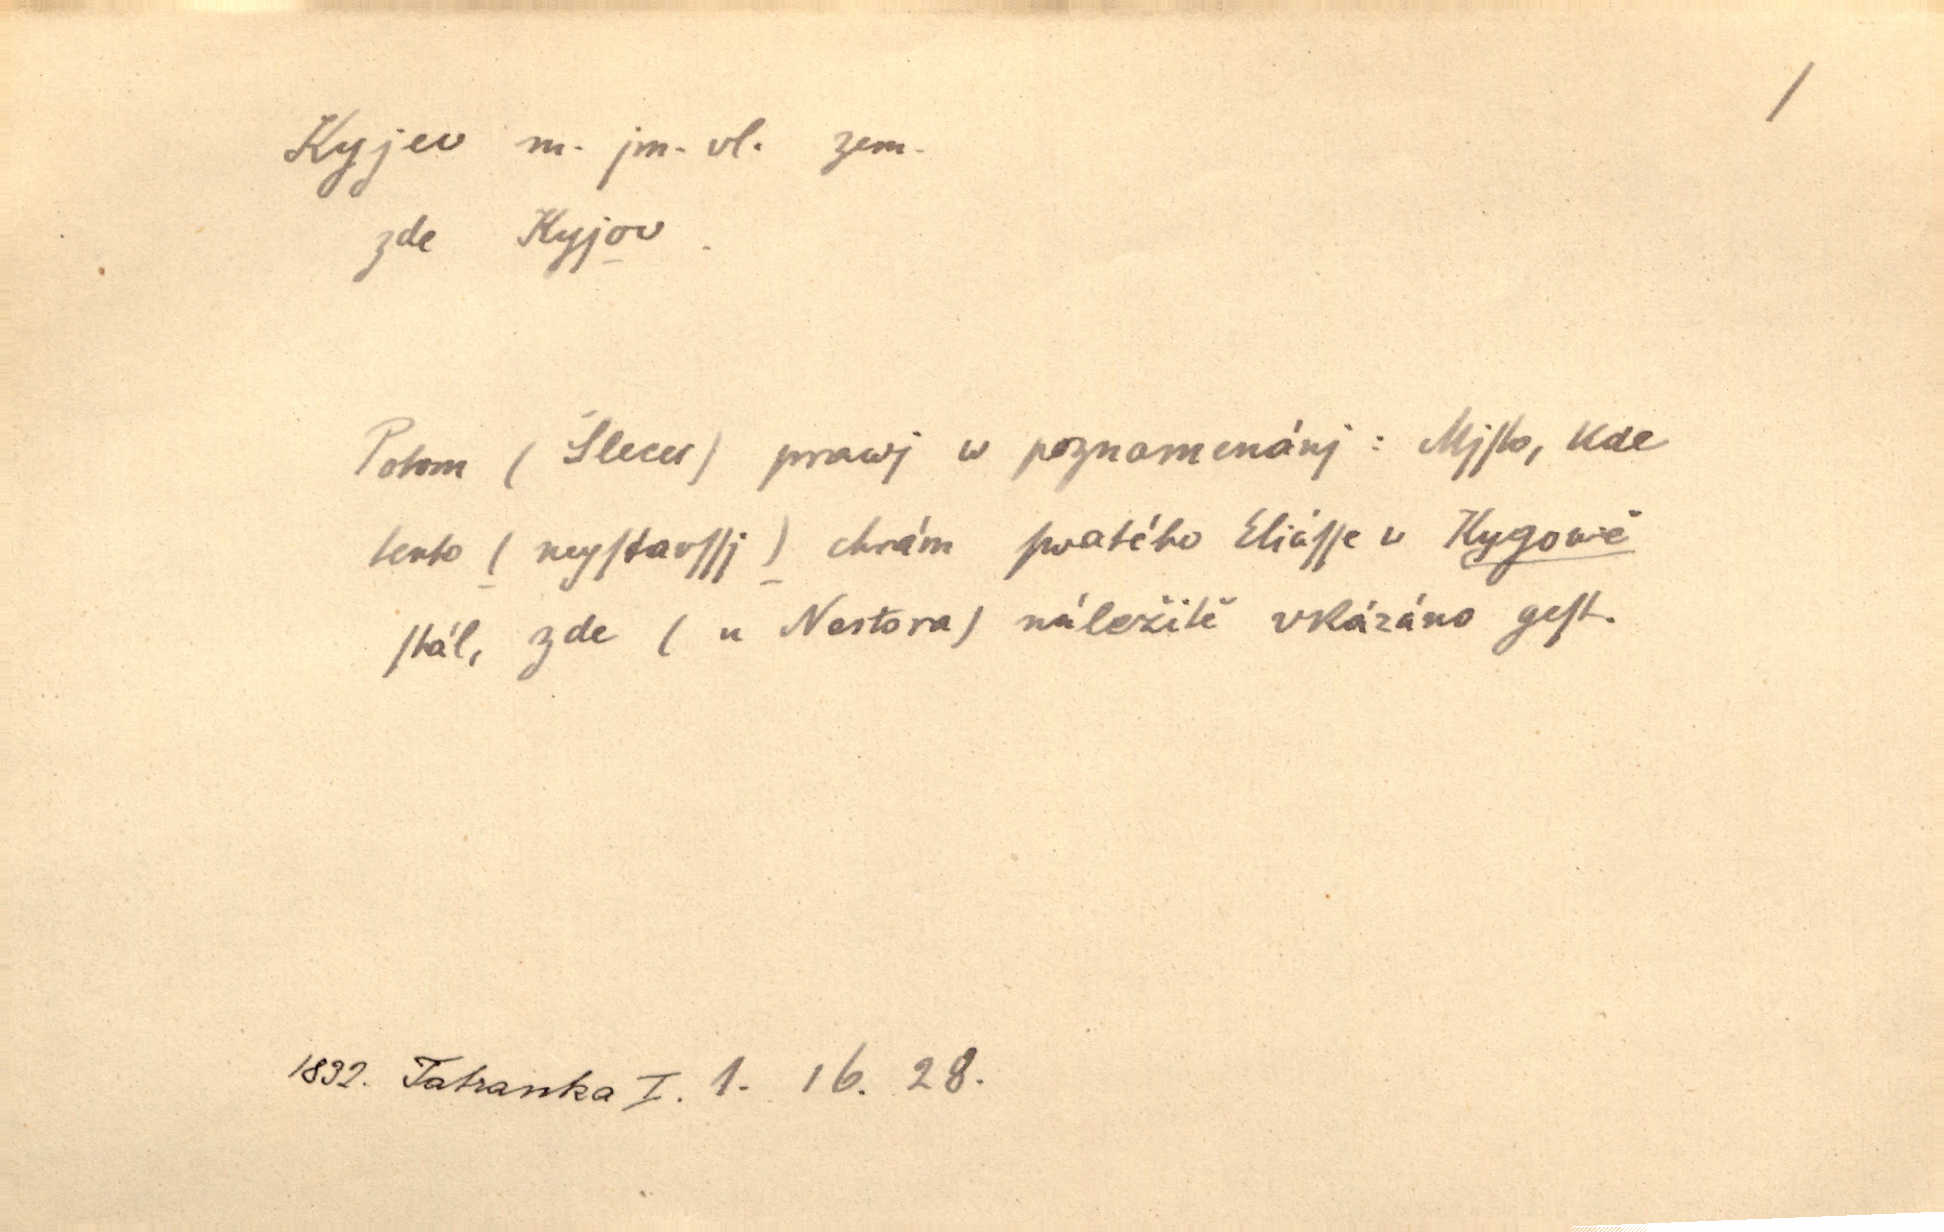 /
Kyjev m. jm. vl. zem.
zde Kyjov.
Potom (Šlecer) prawj w poznamenánj: Mjſto, kde
tento ( neyſtarſſj ) chrám ſwatého Eliáſſe v Kygowě
ſtál, zde ( u Nestora) náležitě vkázáno geſt.
1832. Tatranka I. 1. 16. 28.